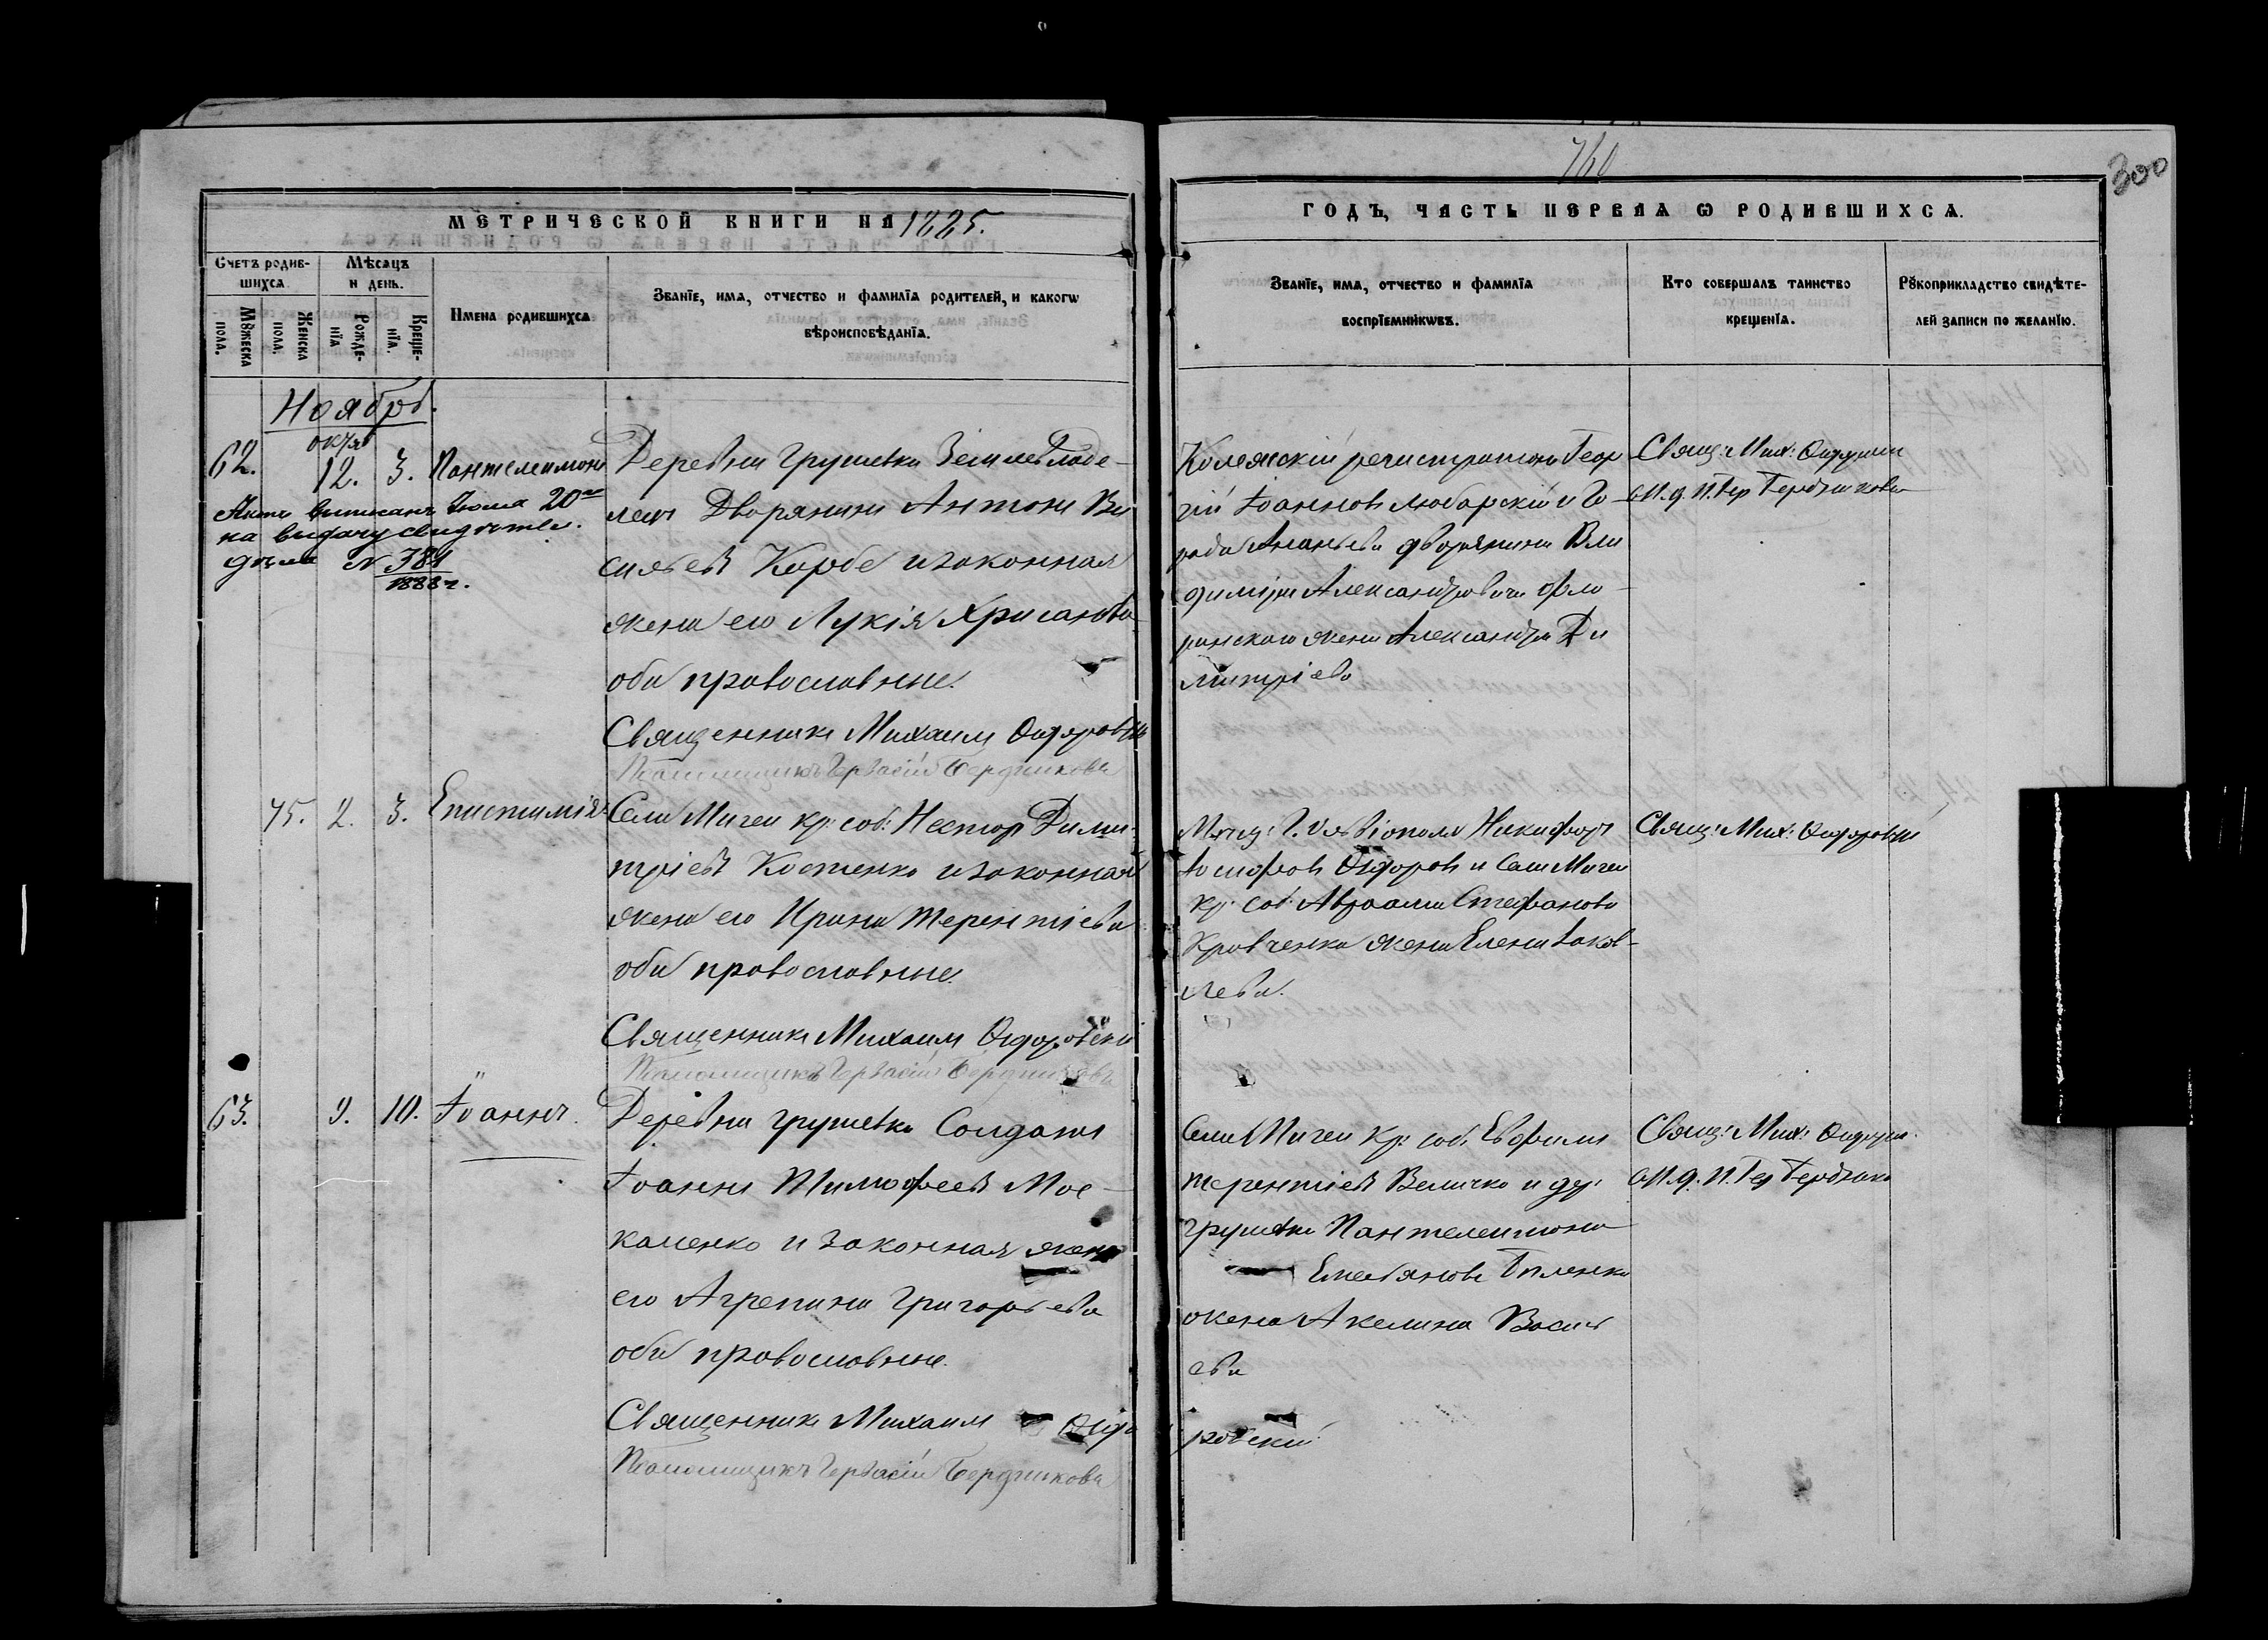 760
300
МЕТРИЧЕСКОЙ КНИГИ НА 1885.
ГОДЪ, ЧАСТЬ ПЕРВАѦ Ѡ РОДИВШИХСѦ.
Счетъ родив-
шихсѧ
Мѣсѧцъ
и день.
Мꙋжеска
пола.
Женска
пола.
Рожде-
нїѧ
Креще-
нїѧ.
Имена родившихсѧ
Званїе, имѧ, отчество и фамилїѧ родителей, и какогѡ
вѣроисповѣданїѧ.
Званїе, имѧ, отчество и фамилїѧ
воспрїемникѡвъ.
Кто совершалъ таинство
крещенїѧ.
Рꙋкоприкладство свидѣте-
лей записи по желанїю.
Ноябрь.
62.
октяб
12. 3. Пантелеимонъ
Актъ выписанъ Іюля 20го
на выдачу свидѣтел.
дѣла № 381
1888 г.
Деревни Грушевки Землевладе-
лецъ Дворянинъ Антонъ Ва
сильевъ Корбе и законная
жена его Лукія Хрисанѳова
оба православные.
Священникъ Михаилъ Ѳидоровскій
Псаломщикъ Гервасій Бердниковъ
Колежскій регистраторъ Геор
гій Іоанновъ Любарскій и
Ананьева дворянина Вла
диміра Александровича Фло
ринскаго жена Александра Ди
митріева
Свящ: Мих: Ѳидоровскій
и. д. П. Гер Бердниковъ
75. 2. 3. Епистимія
Села Мигеи кр: соб: Несторъ Дими-
тріевъ Костенко и законная
жена его Ирина Терентіева
оба православные.
Священникъ Михаилъ Ѳидоровскій
Псаломщикъ Гервасій Бердниковъ
Мѣщ: Г. Ольвіополя Никифоръ
Іосифовъ Ѳидоровъ и Села Мигеи
кр: соб: Авраама Стефанова
Кравченка жена Елена Іаков-
лева.
Свящ: Мих: Ѳидоровскій
63. 9. 10. Іоаннъ.
Деревни Грушевки Солдатъ
Іоаннъ Тимофеевъ Мос-
каленко и законная жена
его Агрепина Григорьева
оба православные.
Священникъ Михаилъ Ѳидо
ровскій
Псаломщикъ Гервасій Бердниковъ
Села Мигеи кр: соб: Евфимъ
Терентіевъ Величко и дер:
Грушевки Пантелеимона
Емельянова Биленка
жена Акелина Василь
ева
Свящ: Мих: Ѳидоров
и. д. П. Гер Берднико